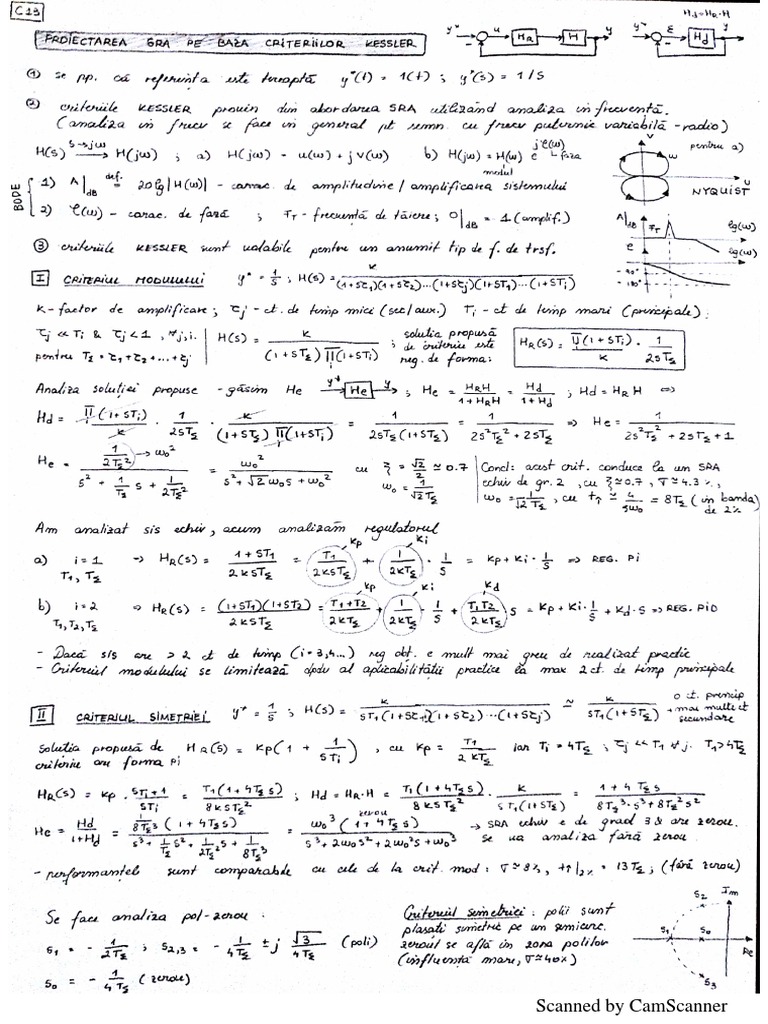 C13
H_d = H_R·H
PROIECTAREA SRA PE BAZA CRITERIILOR KESSLER
y* u H_R H y
y* ε H_d y
① se pp. că referința este treaptă y*(t) = 1(t) ; y*(s) = 1/s
② criteriile KESSLER provin din abordarea SRA utilizând analiza în frecvență.
(analiza în frecv se face în general pt semn. cu frecv puternic variabilă - radio)
H(s) —s→jω→ H(jω) ; a) H(jω) = u(ω) + j v(ω) b) H(jω) = H(ω) e^{jφ(ω)} modul faza
pentru a)
V ω u NYQUIST
BODE
1) A|dB =def. 20 lg |H(ω)| - carac. de amplitudine / amplificarea sistemului
2) φ(ω) - carac. de fază ; F_T - frecvență de tăiere ; 0|dB = 1 (amplif.)
A|dB F_T lg(ω)
φ lg(ω)
-90°
-180°
③ criteriile KESSLER sunt valabile pentru un anumit tip de f. de trsf.
I CRITERIUL MODULULUI y* = 1/s ; H(s) = k / (1+sτ1)(1+sτ2)...(1+sτj)(1+sT1)...(1+sTi)
k - factor de amplificare ; τj - ct. de timp mici (sec/aux.) Ti - ct de timp mari (principale) ;
τj << Ti & τj < 1, ∀j,i. | H(s) = k / (1+sTΣ) ∏(1+sTi) ; soluția propusă de criteriu este reg. de forma: H_R(s) = ∏(1+sTi) / k · 1 / 2sTΣ
pentru TΣ = τ1 + τ2 + ... + τj
Analiza soluției propuse - găsim He y* He y ; He = H_R H / 1+H_R H = Hd / 1+Hd ; Hd = H_R H ⇔
Hd = ∏(1+sTi) / k · 1 / 2sTΣ · k / (1+sTΣ) ∏(1+sTi) = 1 / 2sTΣ(1+sTΣ) = 1 / 2s²TΣ² + 2sTΣ ⇒ He = 1 / 2s²TΣ² + 2sTΣ + 1
He = (1 / 2TΣ²) → ω0² / s² + 1/TΣ s + 1/2TΣ² = ω0² / s² + √2 ω0 s + ω0² cu ξ = √2/2 ≃ 0.7 ω0 = 1 / √2 TΣ
Concl: acest crit. conduce la un SRA
echiv de gr. 2, cu ξ ≃ 0.7, σ ≃ 4.3 %,
ω0 = 1 / √2 TΣ, cu t↑ ≃ 4 / ξω0 = 8TΣ (in banda de 2%)
Am analizat sis echiv, acum analizăm regulatorul
a) i = 1 T1, TΣ → H_R(s) = 1+sT1 / 2ksTΣ = T1 / 2ksTΣ kp + 1 / 2kTΣ ki · 1/s = kp + ki · 1/s ⇒ REG. PI
b) i = 2 T1, T2, TΣ ⇒ H_R(s) = (1+sT1)(1+sT2) / 2ksTΣ = T1+T2 / 2kTΣ kp + 1 / 2kTΣ ki · 1/s + T1T2 / 2kTΣ kd s = kp + ki · 1/s + kd · s ⇒ REG. PID
- Dacă sis are > 2 ct de timp (i = 3,4...) reg obt. e mult mai greu de realizat practic
- Criteriul modulului se limitează dpdv al aplicabilității practice la max 2 ct. de timp principale
II CRITERIUL SIMETRIEI y* = 1/s ; H(s) = k / sT1(1+sτ1)(1+sτ2)...(1+sτj) ≃ k / sT1(1+sTΣ) o ct. princip + mai multe ct secundare
soluția propusă de criteriu are forma PI H_R(s) = kp(1 + 1 / sTi), cu kp = T1 / 2kTΣ iar Ti = 4TΣ ; τj << T1 ∀j. T1 > 4TΣ
H_R(s) = kp · sTi+1 / sTi = T1(1+4TΣs) / 8ksTΣ² ; Hd = H_R·H = T1(1+4TΣs) / 8ksTΣ² · k / sT1(1+sTΣ) = 1+4TΣs / 8TΣ³·s³ + 8TΣ²s²
He = Hd / 1+Hd = 1/8TΣ³ (1+4TΣs) / s³ + 1/TΣ s² + 1/2TΣ² s + 1/8TΣ³ = ω0³ (1+4TΣs) zerou / s³ + 2ω0s² + 2ω0²s + ω0³ → SRA echiv e de grad 3 & are zerou.
se va analiza fără zerou
- performanțele sunt comparabile cu cele de la crit. mod : σ ≃ 8%, t↑|2% = 13TΣ ; (fără zerou)
Se face analiza pol-zerou :
s1 = - 1 / 2TΣ ; s2,3 = - 1 / 4TΣ ± j √3 / 4TΣ (poli)
s0 = - 1 / 4TΣ (zerou)
Criteriul simetriei : polii sunt
plasați simetric pe un semicerc.
zeroul se află în zona polilor
(influență mare, σ ≃ 40%)
s2 Im
s1 s0 Re
s3
Scanned by CamScanner